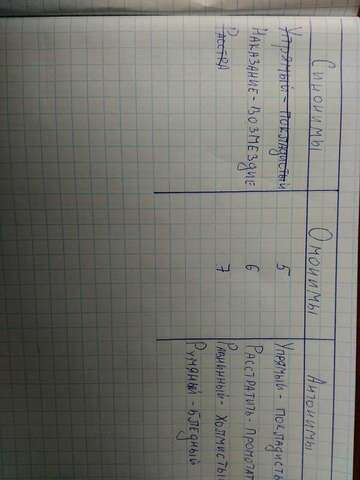 Синонимы Омонимы Антонимы
Упрямый - покладистый 5 Упрямый - покладисть
Наказание - возмездие 6 Расстратить - промотат
Расстра 7 Равнинный - холмисты
Румяный - бледный